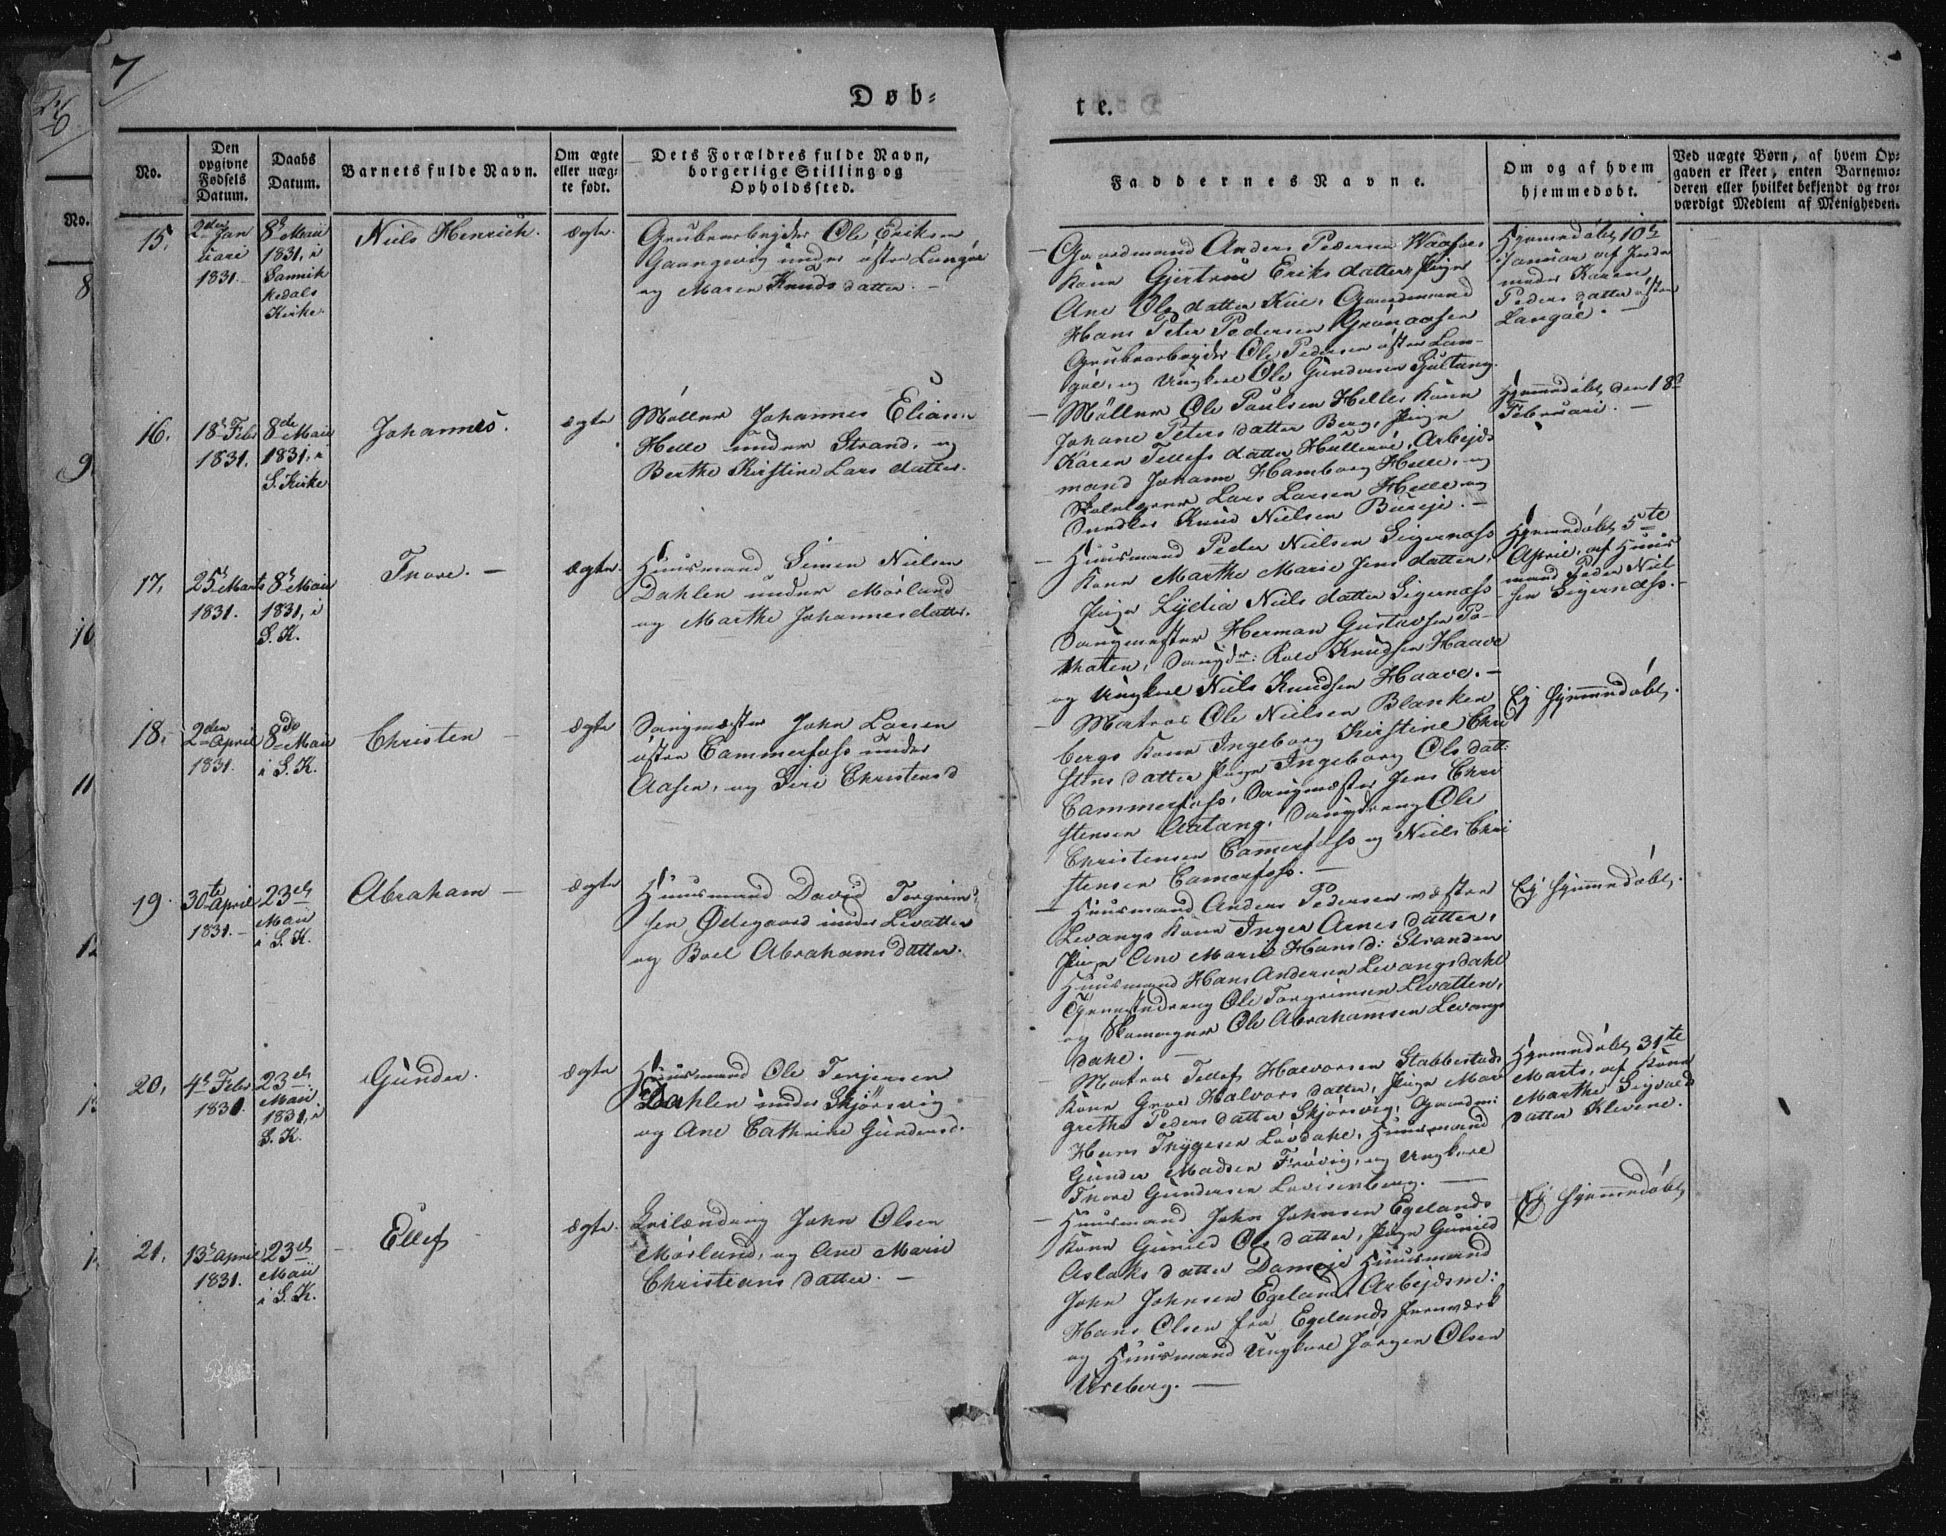 7
Døb-
te.
No.
Den opgivne Fødsels Datum.
Daabs Datum.
Barnets fulde Navn.
Om ægte eller uægte født.
Dets Forældres fulde Navn, borgerlige Stilling og Opholdssted.
Faddernes Navne.
Om og af hvem hjemmedøbt.
Ved uægte Børn, af hvem Op-
gaven er skeet, enten Barnemo-
deren eller hvilket bekjendt og tro-
værdigt Medlem af Menigheden.
No.
8
9.
10
11
12
15.
2den Jan
uari
1831.
8de Maii
1831, i
Sannik
kedals
Kirke.
Niels Henrich.
ægte
Grubearbeyder Ole Eriksen
Gaangevig under østre Langøe
og Maren Knudsdatter. –
– Gaardmand Anders Pedersen
Kone Gjertrue Eriksdatter, Pige
Ane Olsdatter Kiil, Gaardmand
Hans Peter Pedersen Grønaasen
Grubearbeyder Ole Pedersen østre Lan-
gøe, og Ungkarl Ole Gundersen
Hjemmedøbt 10de
Januar af Jorde
moder Karen
Pedersdatter østre
Langøe. –
16.
18de Febr
1831.
8de Maii
1831, i
S. Kirke
Johannes.
ægte
Møller Johannes Elias
Helle under Strand, og
Berthe Kirstine Larsdatter.
– Møller Ole Paulsen Helles Kone
Johane Petersdatter Berg, Pige
Karen Tellefsdatter, Arbejds
mand Johannes Hamborg Helle, og
Skolelærer Lars Larsen Helle og
Knud Nielsen
Hjemmedøbt den 18de
Februari. –
17.
25de Marts
1831.
8de Maii
1831, i
S. K.
Thore. –
ægte.
Huusmand Simen Nielsen
Dahlen under Mørland
og Marthe Johannesdatter.
– Huusmand Peder Nielsen Sigernæss
Kone Marthe Marie Jensdatter,
Pige Lydia Nielsdatter Sigernæss
Saugmester Herman Gustavsen Po-
thaten, Knudsen Haave
og Ungkarl Niels Knudsen Haave. –
Hjemmedøbt 5te
April, af Huus
mand Peder Niel
sen Sigernæss. –
18.
2den April
1831.
8de Maii
i S. K.
Christen –
ægte
Saugmester John Larsen
østre Cammerfoss under
Aasen, og Siri Christensd
– Matros Ole Nielsen Blanken
bergs Kone Ingeborg Kirstine Chri
stensdatter Pige Ingeborg Olsdatt:
Cammerfoss, Saugmester Jens Chri
stensen Aatang, Saugdreng Ole
Christensen Camerfoss og Niels Chri
stensen Camerfoss. –
Ej hjemmedøbt.
19.
30te April
1831. –
23de
Maii
i S. K.
Abraham –
ægte
Huusmand David Torgrim-
sen Ødegaard under Levatten
og Boel Abrahamsdatter.
– Huusmand Anders Pedersen væstre
Levangs Kone Inger Arnesdatter,
Pige Ane Marie Hansd: Stranden
Huusmand Hans Andersen Levangsdahl
Tjenestedreng Ole Torgrimsen Levatten,
og Skomager Ole Abrahamsen Levangs
dahl. –
Ej hjemmedøbt.
20.
4de Febr
1831.
23de
Maii
1831, i
S. K.
Gunder.
ægte
Huusmand Ole Terjesen
Dahlen under Skjørsvig
og Ane Cathrine Gundersd.
– Matros Tellef Halvorsen Stabbestads
Kone Groe Halvorsdatter, Pige Mar
grethe Pedersdatter Skjørsvig, Gaardm:
Hans Thygesen Løvdahl, Huusmand
Gunder Madsen Frøvig, og Ungkarl
Thore Gundersen Lovisenberg. –
Hjemmedøbt 31te
Marts, af Kone
Marthe Sigvalds
datter Klevene.
21.
13de April
1831.
23de
Maii
i S. K.
Ellef
ægte.
Leilænding John Olsen
Mørland, og Ane Marie
Christiansdatter. –
– Huusmand John Johnsen Egelands
Kone Gunild Olsdatter, Pige Gunild
Aslaksdatter Damejé, Huusmand
John Johnsen Egeland, Arbejdsm:
Hans Olsen fra Egelands Jernværk
og Huusmand Ungkarl Jørgen Olsen
Ureberg. –
Ej hjemmedøbt